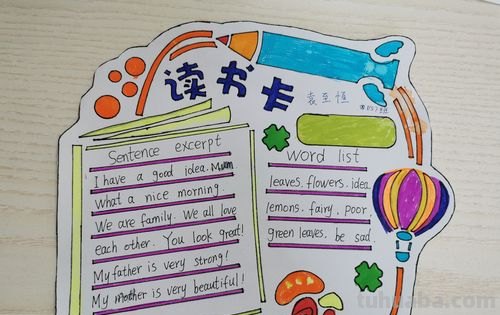 读书卡
袁至恒
Sentence excerpt
I have a good idea, Mum.
What a nice morning.
We are family. We all love
each other. You look great!
My father is very strong!
My mother is very beautiful!
Word list
leaves. flowers. idea
lemons. fairy. poor.
green leaves. be sad.
tuhuaba.com